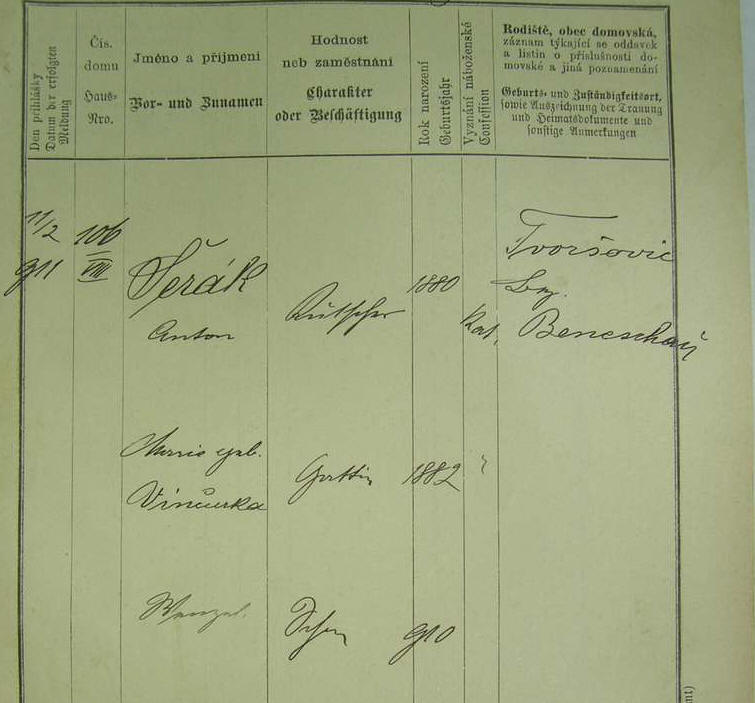 Den přihlášky
Datum der erfolgten
Meldung
Čís.
domu
Haus-
Nro.
Jméno a příjmení
Vor- und Zunamen
Hodnost
neb zaměstnání
Charakter
oder Beschäftigung
Rok narození
Geburtsjahr
Vyznání náboženské
Confession
Rodiště, obec domovská,
záznam týkající se oddavek
a listin o příslušnosti do-
movské a jiná poznamenání
Geburts- und Zuständigkeitsort,
sowie Auszeichnung der Trauung
und Heimatsdokumente und
sonstige Anmerkungen
11/2
911
106
VIII
Šerák
Anton
Kutscher
1880
Kat.
Tvoršovic
Bez.
Beneschau
Marie geb.
Vinčurka
Gattin
1882
"
Wenzel
Sohn
910